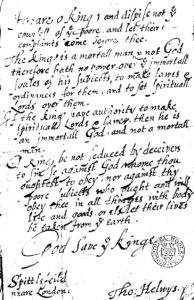 Heare o King, and dispise not ye
counsell of ye poore, and let their
complaints come before thee.
The King is a mortall man & not God
therefore hath no power over ye immortall
soules of his subiects, to make lawes &
ordinances for them, and to set spirituall
Lords over them.
If the King have authority to make
spirituall Lords & lawes, then he is
an immortall God, and not a mortall
man.
O King, be not seduced by deceivers
to sin so against God whome thou
oughtest to obey, nor against thy
poore subiects who ought and will
obey thee in all things with body
life and goods, or els let their lives
be taken from ye earth.
God save ye Kinge
Spittlefeild
neare London.
Tho: Helwys.